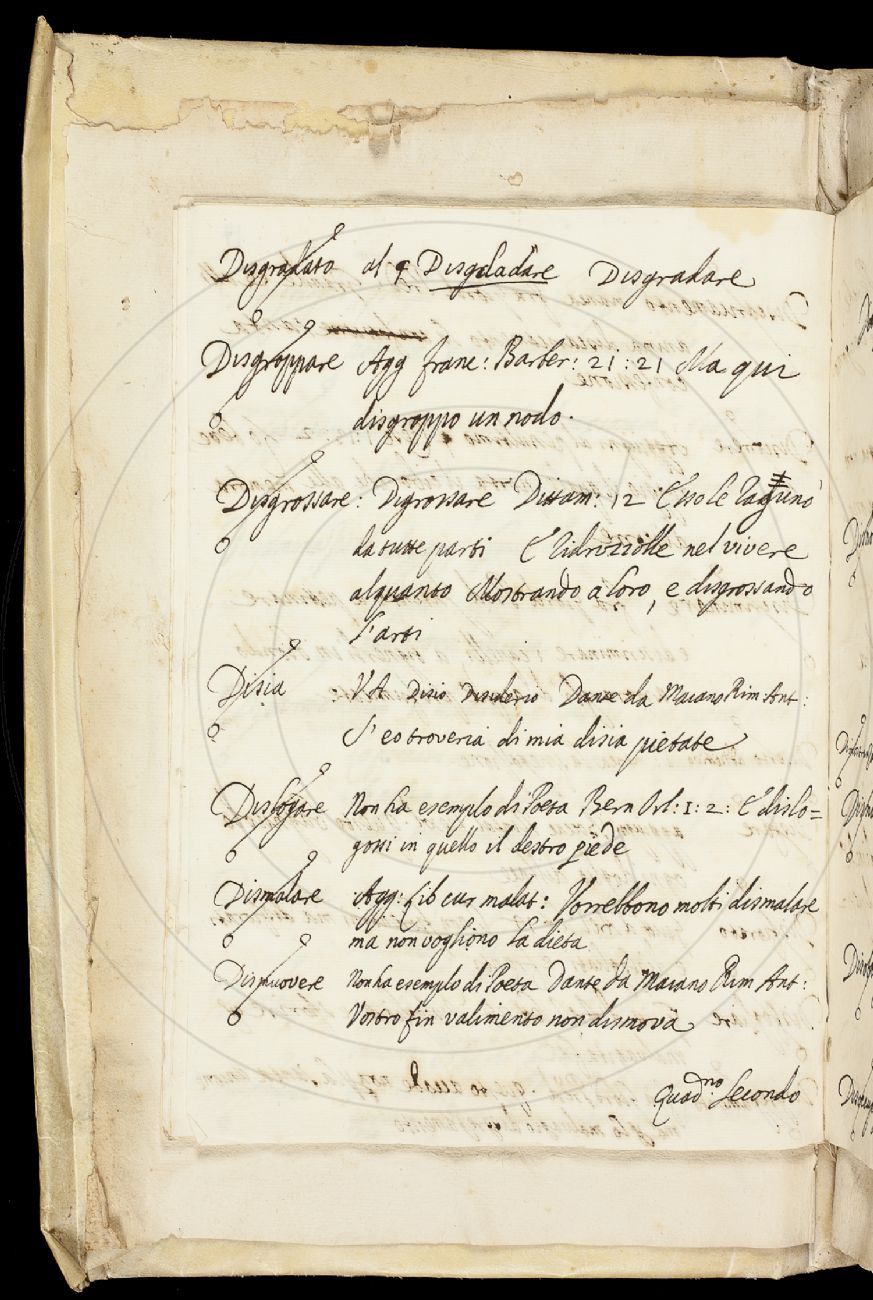 Disgradato al § Disgdadare Disgradare
Disgroppare Agg franc: Barber: 21:21 Ma qui
disgroppo un nodo.
Disgrossare: Digrossare Dittam: 12 E usole Ragunò
da tutte parti E Ridrizzolle nel vivere
alquanto Mostrando a loro, e disgrossando
l'arti
Disia : VA Disio Desiderio Dante da Maiano Rim Ant:
S'eo troveria di mia disia pietate
Dislogare Non ha esemplo di Poeta Bern Orl: 1: 2: E dislo=
gossi in quello il destro piede
Dismalare Agg: Lib cur malat: Vorrebbono molti dismalare
ma non vogliono la dieta
Dismuovere Non ha esemplo di Poeta Dante da Maiano Rim Ant:
Vostro fin valimento non dismova
Quad.no Secondo